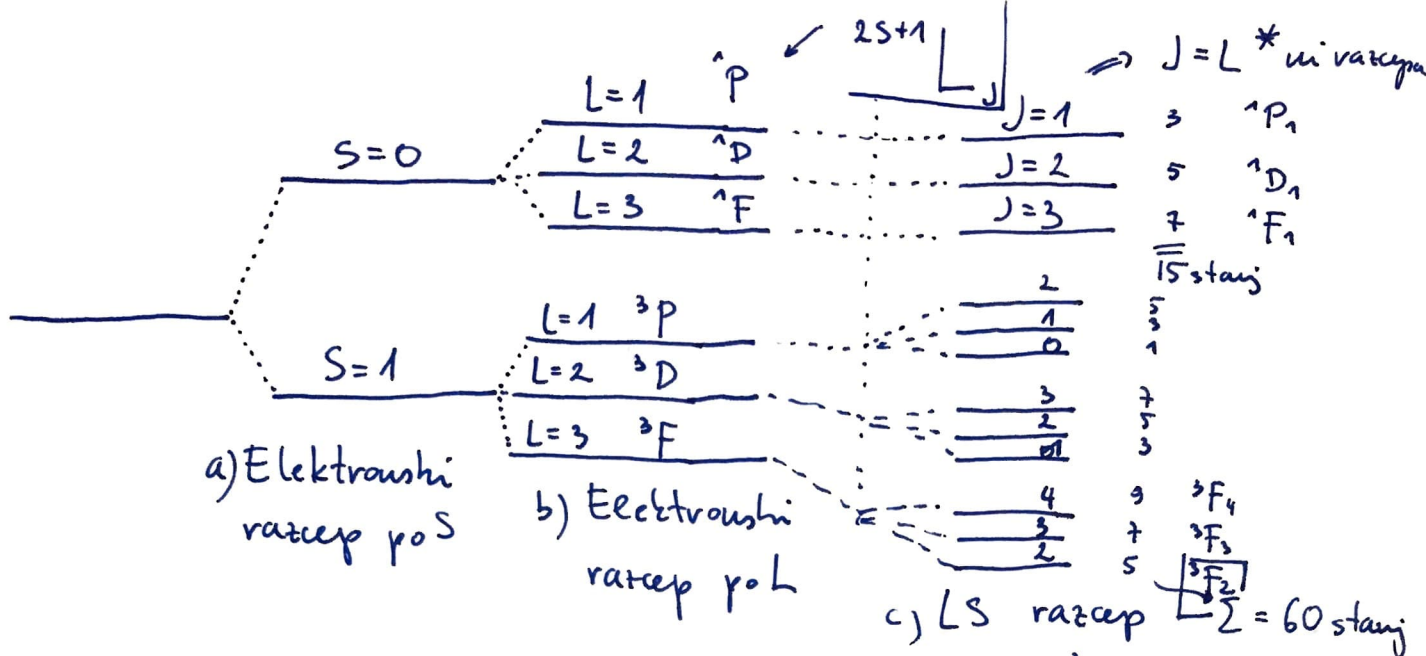 2S+1 L J
J = L * ni razcepa
S=0
L=1 ¹P
L=2 ¹D
L=3 ¹F
J=1 3 ¹P₁
J=2 5 ¹D₁
J=3 7 ¹F₁
15 stanj
S=1
L=1 ³P
L=2 ³D
L=3 ³F
2 5
1 3
0 1
3 7
2 5
1 3
4 9 ³F₄
3 7 ³F₃
2 5 ³F₂
a) Elektronski
razcep po S
b) Elektronski
razcep po L
c) LS razcep
Σ = 60 stanj